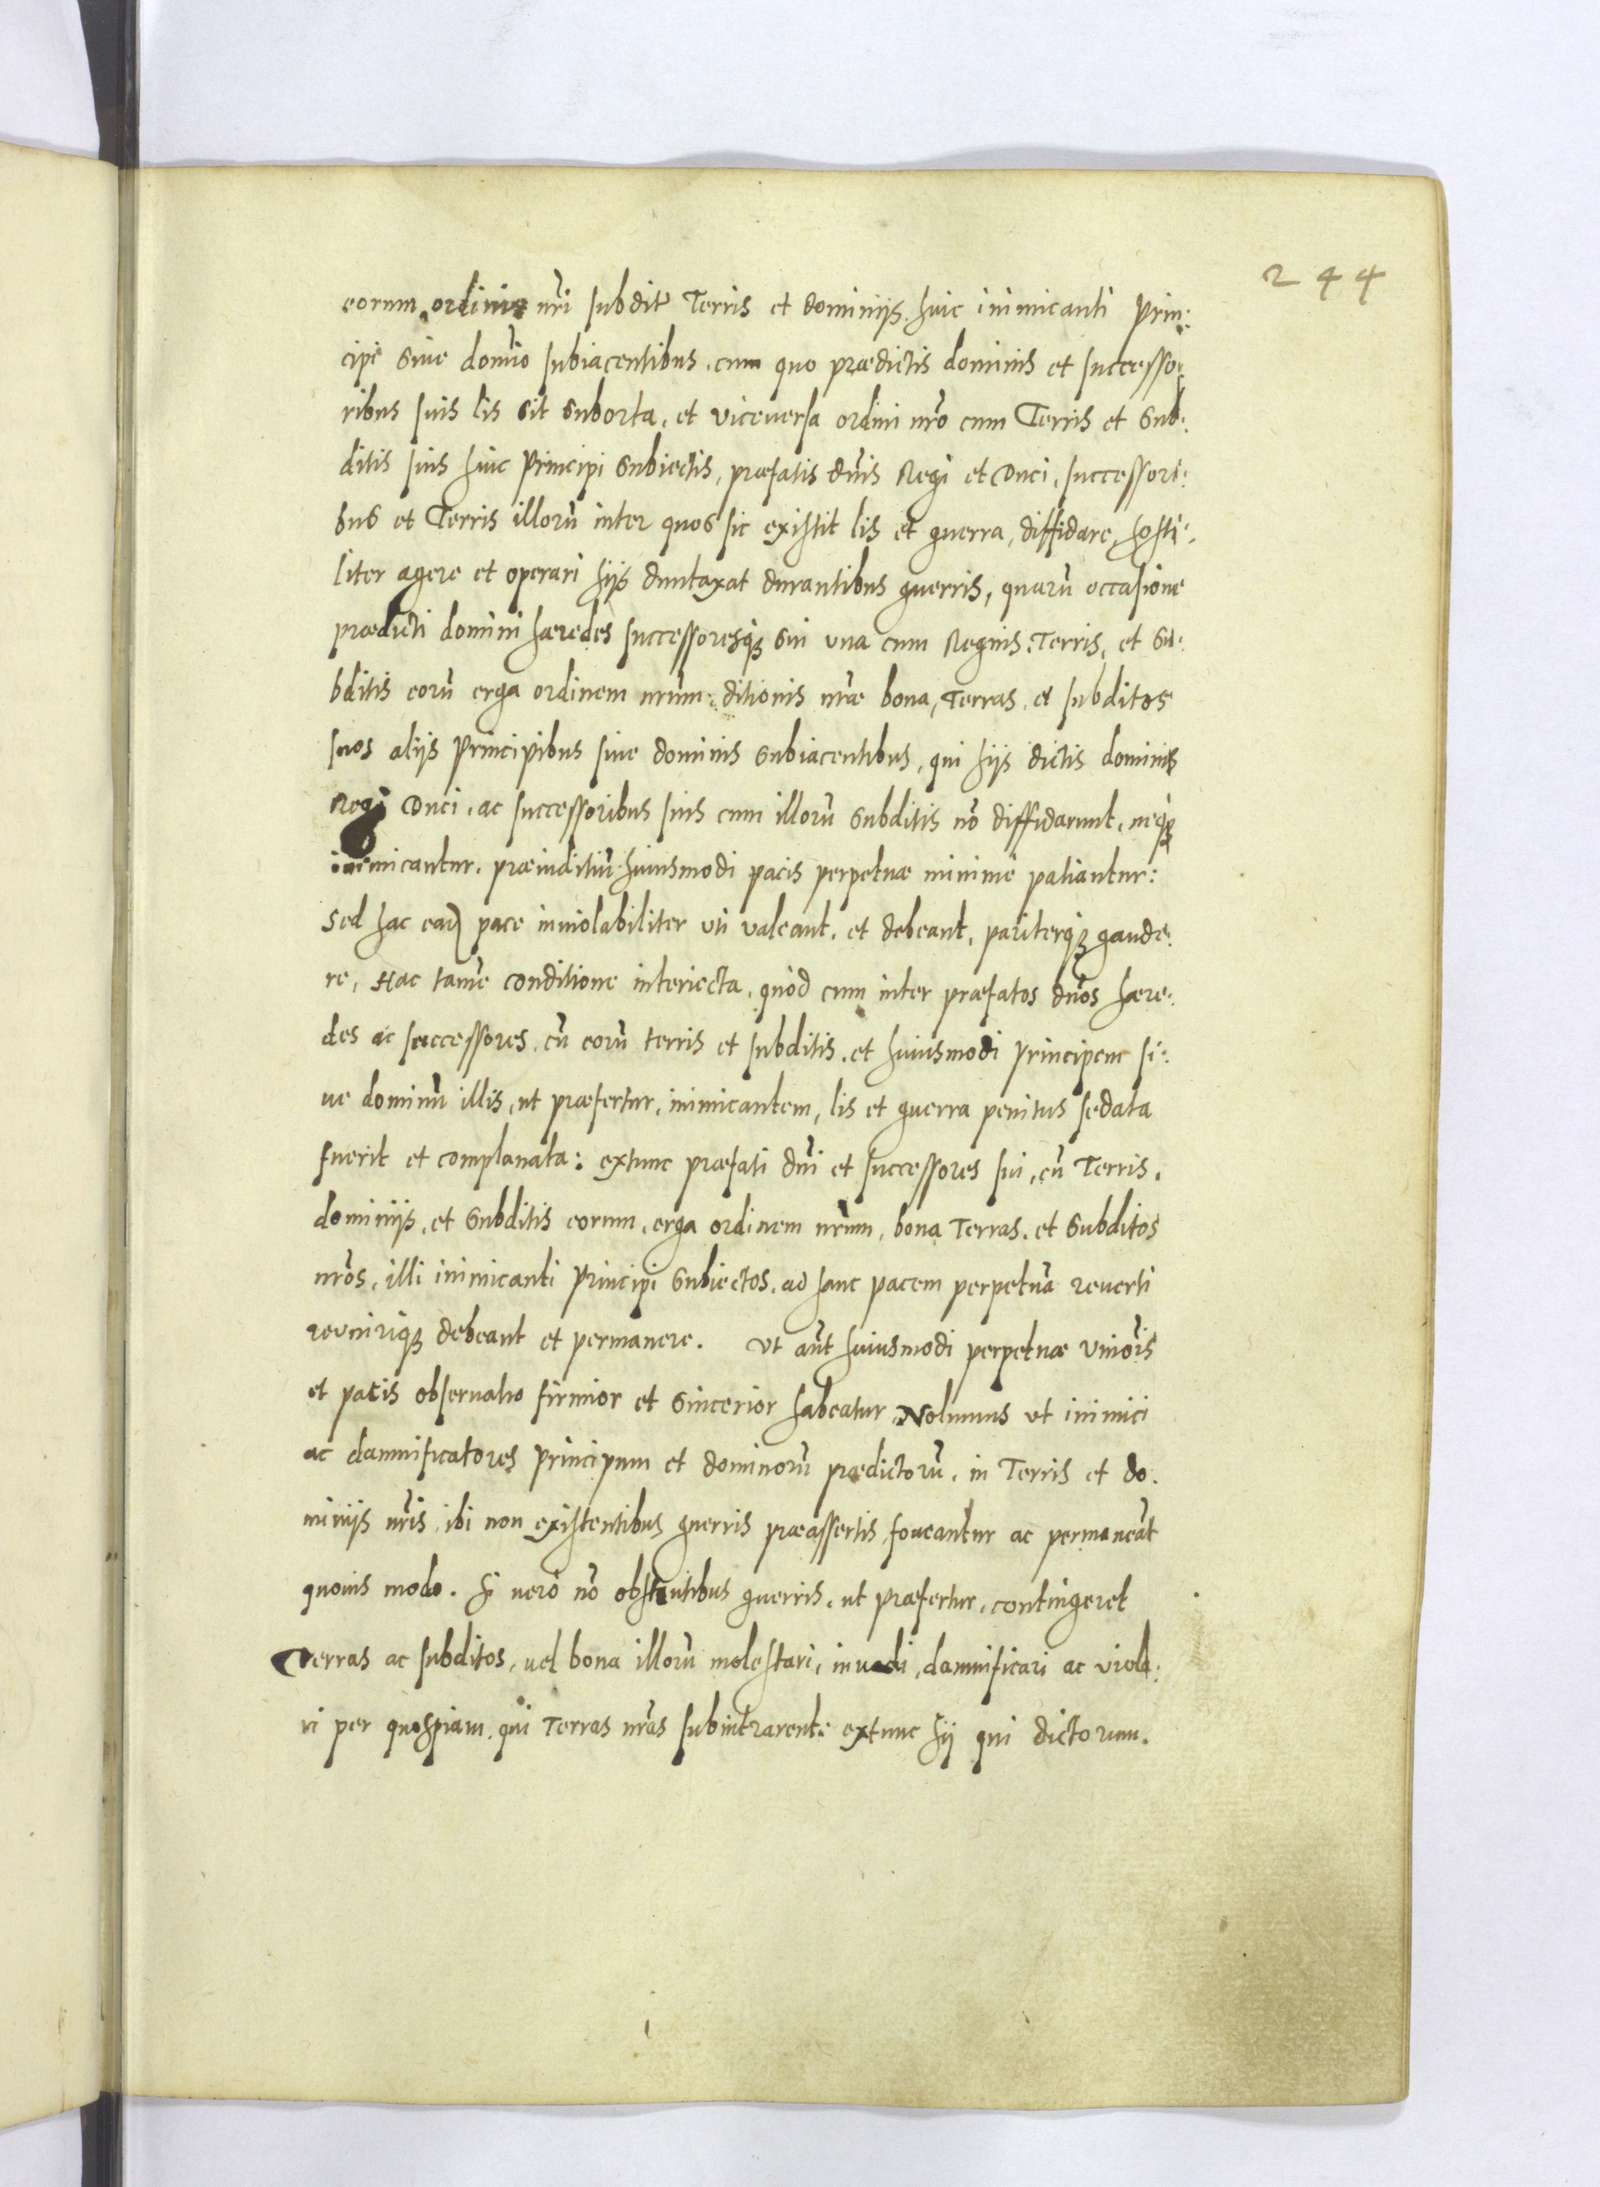 244
eorum, ordinis nr̃i subdit' Terris et dominijs huic inimicanti Prin:
cipi siue domĩo subiacentibus, cum quo prædictis dominis et successo:
ribus suis lis sit suborta, et viceuersa ordini nr̃o cum Terris et sub:
ditis suis huic Principi subiectis, præfatis dñis Regi et Duci, successori:
bus et Terris illorũ inter quos sic existit lis et guerra, diffidare, hosti:
liter agere et operari hijs duntaxat durantibus guerris, quarũ occasione
prædicti domini hæredes successoresq; sui vna cum Regnis, Terris, et su:
bditis eorũ erga ordinem nrũm: ditionis nr̃æ bona, Terras, et subditos
suos alijs Principibus siue dominis subiacentibus, qui hijs dictis dominis
Regi Duci, ac successoribus suis cum illorũ subditis nõ diffidarunt, neq;
inimicantur, præiuditiũ huiusmodi pacis perpetuæ minime patiantur:
Sed hac ead pace inuiolabiliter vti valeant, et debeant, pariterq; gaude:
re, Hac tamẽ conditione interiecta, quòd cum inter præfatos dños hære:
des ac successores, cũ eorũ terris et subditis, et huiusmodi Principem si:
ue dominũ illis, ut præfertur, inimicantem, lis et guerra penitus sedata
fuerit et complanata: extunc præfati dñi et successores sui, cũ Terris,
dominijs, et subditis eorum, erga ordinem nr̃um, bona Terras, et subditos
nr̃os, illi inimicanti Principi subiectos, ad hanc pacem perpetuã reuerti
reuniriq; debeant et permanere. Vt aũt huiusmodi perpetuæ Vniõis
et pacis obseruatio firmior et sincerior habeatur, Nolumus vt inimici
ac damnificatores Principum et dominorũ prædictorũ, in Terris et do:
minijs nr̃is, ibi non existentibus guerris præassertis, foueantur ac permaneãt
quouis modo. Si uerò nõ obstantibus guerris, ut præfertur, contingeret
Terras ac subditos, uel bona illorũ molestari, inuadi, damnificari ac viola:
ri per quospiam, qui Terras nr̃as subintrarent: extunc hij qui dictorum.